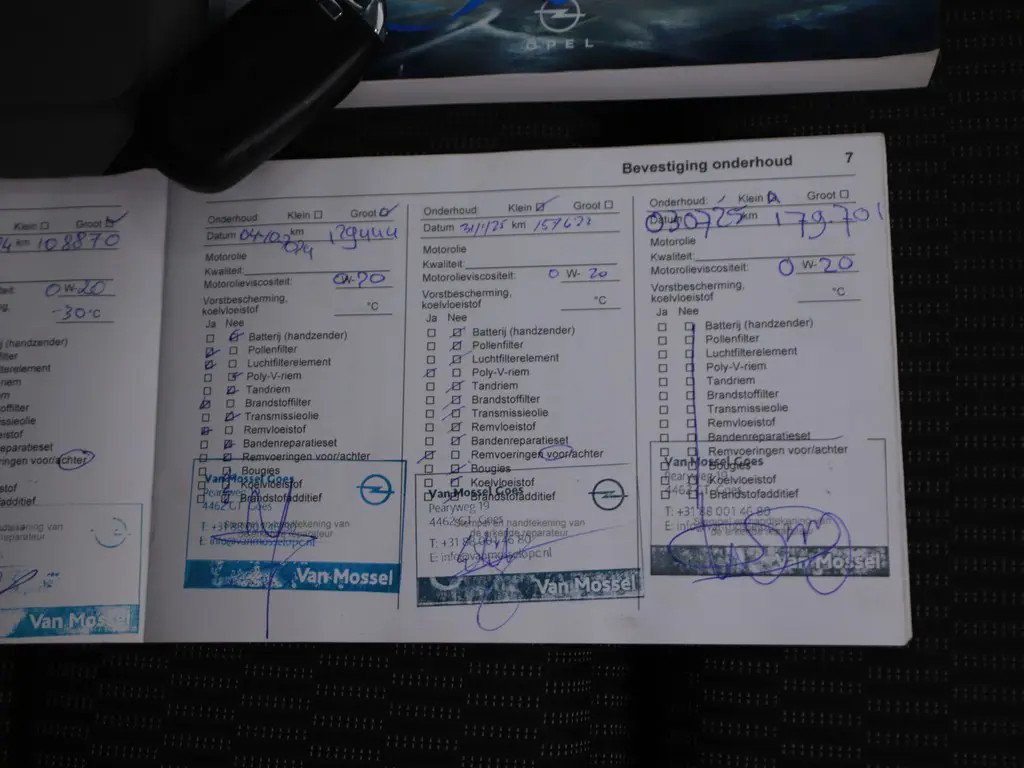 OPEL
Bevestiging onderhoud 7
Klein Groot
km 108870
0 W-20
-30 °C
(handzender)
achter
Van Mossel
Onderhoud: Klein Groot
Datum km 129444
Motorolie
Kwaliteit:
Motorolieviscositeit: 0 W-20
Vorstbescherming,
koelvloeistof °C
Ja Nee
Batterij (handzender)
Pollenfilter
Luchtfilterelement
Poly-V-riem
Tandriem
Brandstoffilter
Transmissieolie
Remvloeistof
Bandenreparatieset
Remvoeringen voor/achter
Bougies
Koelvloeistof
Brandstofadditief
Van Mossel Goes
Pearyweg
4462 GT Goes
Van Mossel
Onderhoud: Klein Groot
Datum 31/1/25 km
Motorolie
Kwaliteit:
Motorolieviscositeit: 0 W- 20
Vorstbescherming,
koelvloeistof °C
Ja Nee
Batterij (handzender)
Pollenfilter
Luchtfilterelement
Poly-V-riem
Tandriem
Brandstoffilter
Transmissieolie
Remvloeistof
Bandenreparatieset
Remvoeringen voor/achter
Bougies
Koelvloeistof
Brandstofadditief
Van Mossel Goes
Pearyweg 19
4462 GT Goes
Stempel en handtekening van
de erkende reparateur
E: info@vanmosselopc.nl
Van Mossel
Onderhoud: Klein Groot
Datum 030725 km 179.701
Motorolie
Kwaliteit:
Motorolieviscositeit: 0 W-20
Vorstbescherming,
koelvloeistof °C
Ja Nee
Batterij (handzender)
Pollenfilter
Luchtfilterelement
Poly-V-riem
Tandriem
Brandstoffilter
Transmissieolie
Remvloeistof
Bandenreparatieset
Remvoeringen voor/achter
Bougies
Koelvloeistof
Brandstofadditief
Van Mossel Goes
Pearyweg 19
T: +31 88 001 46 80
de erkende
Van Mossel